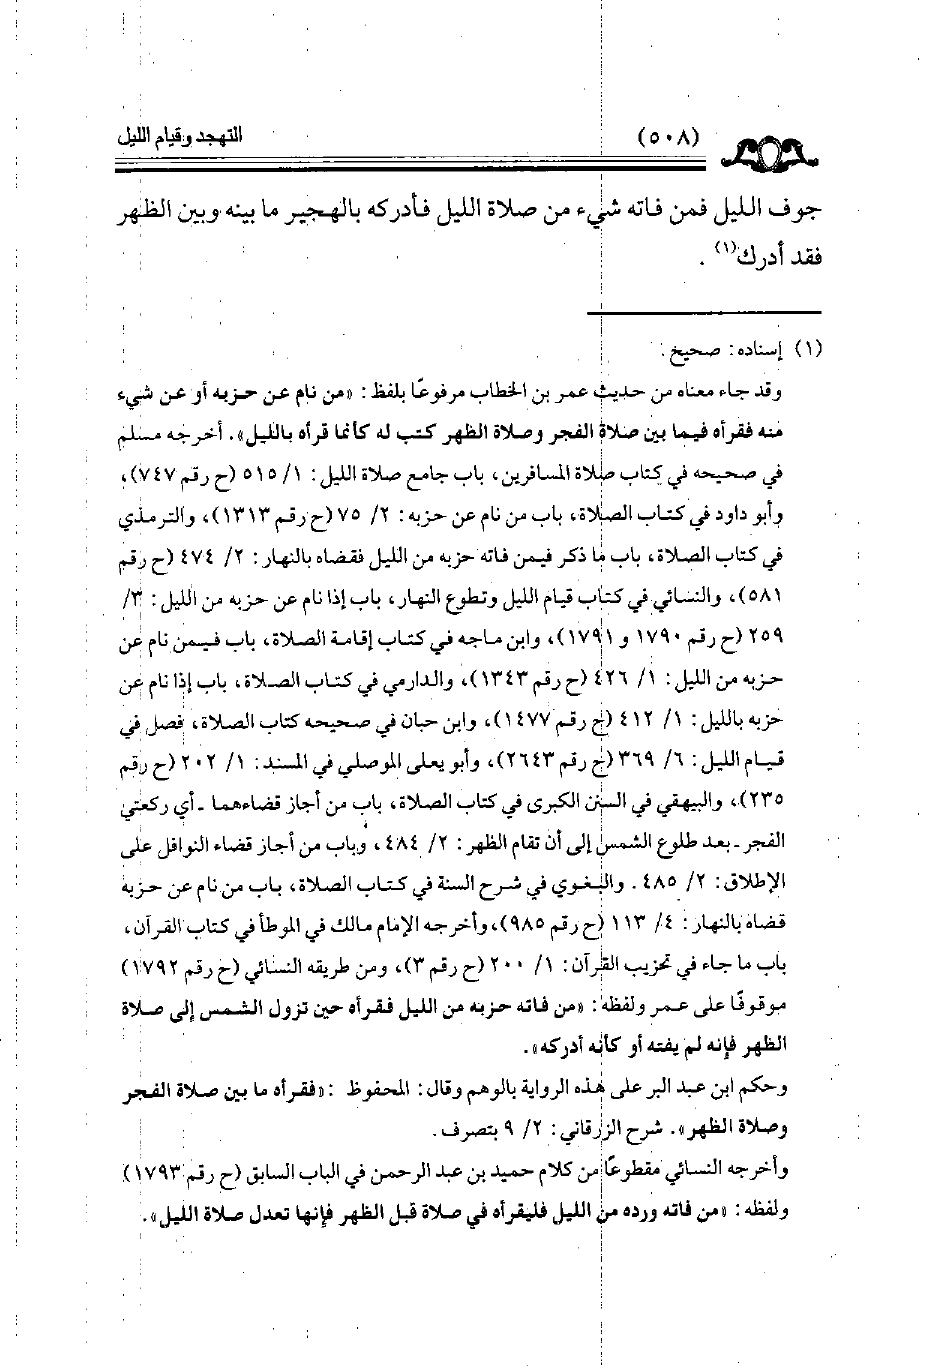 (٥٠٨) التهجد وقيام الليل
جوف الليل فمن فاته شيء من صلاة الليل فأدركه بالهجير ما بينه وبين الظهر
فقد أدرك(١) .
(١) إسناده: صحيح.
وقد جاء معناه من حديث عمر بن الخطاب مرفوعًا بلفظ: «من نام عن حزبه أو عن شيء
منه فقرأه فيما بين صلاة الفجر وصلاة الظهر كتب له كأنما قرأه بالليل». أخرجه مسلم
في صحيحه في كتاب صلاة المسافرين، باب جامع صلاة الليل: ١/ ٥١٥ (ح رقم ٧٤٧)،
وأبو داود في كتاب الصلاة، باب من نام عن حزبه: ٢/ ٧٥ (ح رقم ١٣١٣)، والترمذي
في كتاب الصلاة، باب ما ذكر فيمن فاته حزبه من الليل فقضاه بالنهار: ٢/ ٤٧٤ (ح رقم
٥٨١)، والنسائي في كتاب قيام الليل وتطوع النهار، باب إذا نام عن حزبه من الليل: ٣/
٢٥٩ (ح رقم ١٧٩٠ و ١٧٩١)، وابن ماجه في كتاب إقامة الصلاة، باب فيمن نام عن
حزبه من الليل: ١/ ٤٢٦ (ح رقم ١٣٤٣)، والدارمي في كتاب الصلاة، باب إذا نام عن
حزبه بالليل: ١/ ٤١٢ (ح رقم ١٤٧٧)، وابن حبان في صحيحه كتاب الصلاة، فصل في
قيام الليل: ٦/ ٣٦٩ (ح رقم ٢٦٤٣)، وأبو يعلى الموصلي في المسند: ١/ ٢٠٢ (ح رقم
٢٣٥)، والبيهقي في السنن الكبرى في كتاب الصلاة، باب من أجاز قضاءهما ـ أي ركعتي
الفجر ـ بعد طلوع الشمس إلى أن تقام الظهر: ٢/ ٤٨٤، وباب من أجاز قضاء النوافل على
الإطلاق: ٢/ ٤٨٥. والبغوي في شرح السنة في كتاب الصلاة، باب من نام عن حزبه
قضاه بالنهار: ٤/ ١١٣ (ح رقم ٩٨٥)، وأخرجه الإمام مالك في الموطأ في كتاب القرآن،
باب ما جاء في تحزيب القرآن: ١/ ٢٠٠ (ح رقم ٣)، ومن طريقه النسائي (ح رقم ١٧٩٢)
موقوفًا على عمر ولفظه: «من فاته حزبه من الليل فقرأه حين تزول الشمس إلى صلاة
الظهر فإنه لم يفته أو كأنه أدركه».
وحكم ابن عبد البر على هذه الرواية بالوهم وقال: المحفوظ: «فقرأه ما بين صلاة الفجر
وصلاة الظهر». شرح الزرقاني: ٢/ ٩ بتصرف.
وأخرجه النسائي مقطوعًا من كلام حميد بن عبد الرحمن في الباب السابق (ح رقم ١٧٩٣)
ولفظه: «من فاته ورده من الليل فليقرأه في صلاة قبل الظهر فإنها تعدل صلاة الليل».